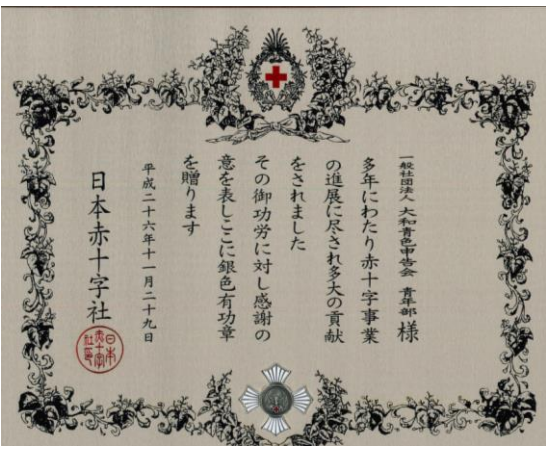 一般社団法人 大和青色申告会 青年部 様
多年にわたり赤十字事業
の進展に尽され多大の貢献
をされました
その御功労に対し感謝の
意を表しここに銀色有功章
を贈ります
平成二十六年十一月二十九日
日本赤十字社
日本
赤十字
社長